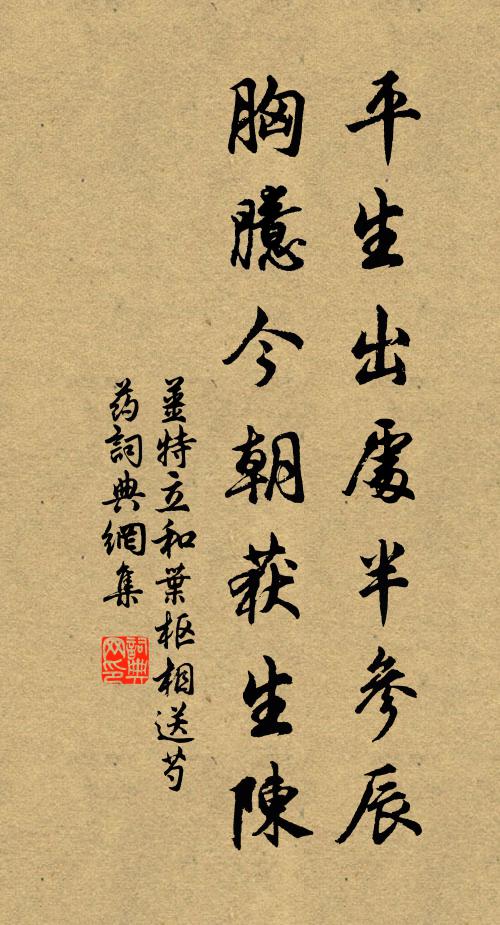 平生出處半參辰
胸臆今朝获生陳
姜特立和葉枢相送芍
药詞典網集
詞典
网印